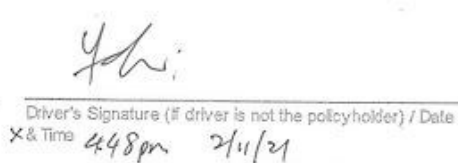 Driver's Signature (if driver is not the policyholder) / Date
x & Time 4:48pm 2/11/21